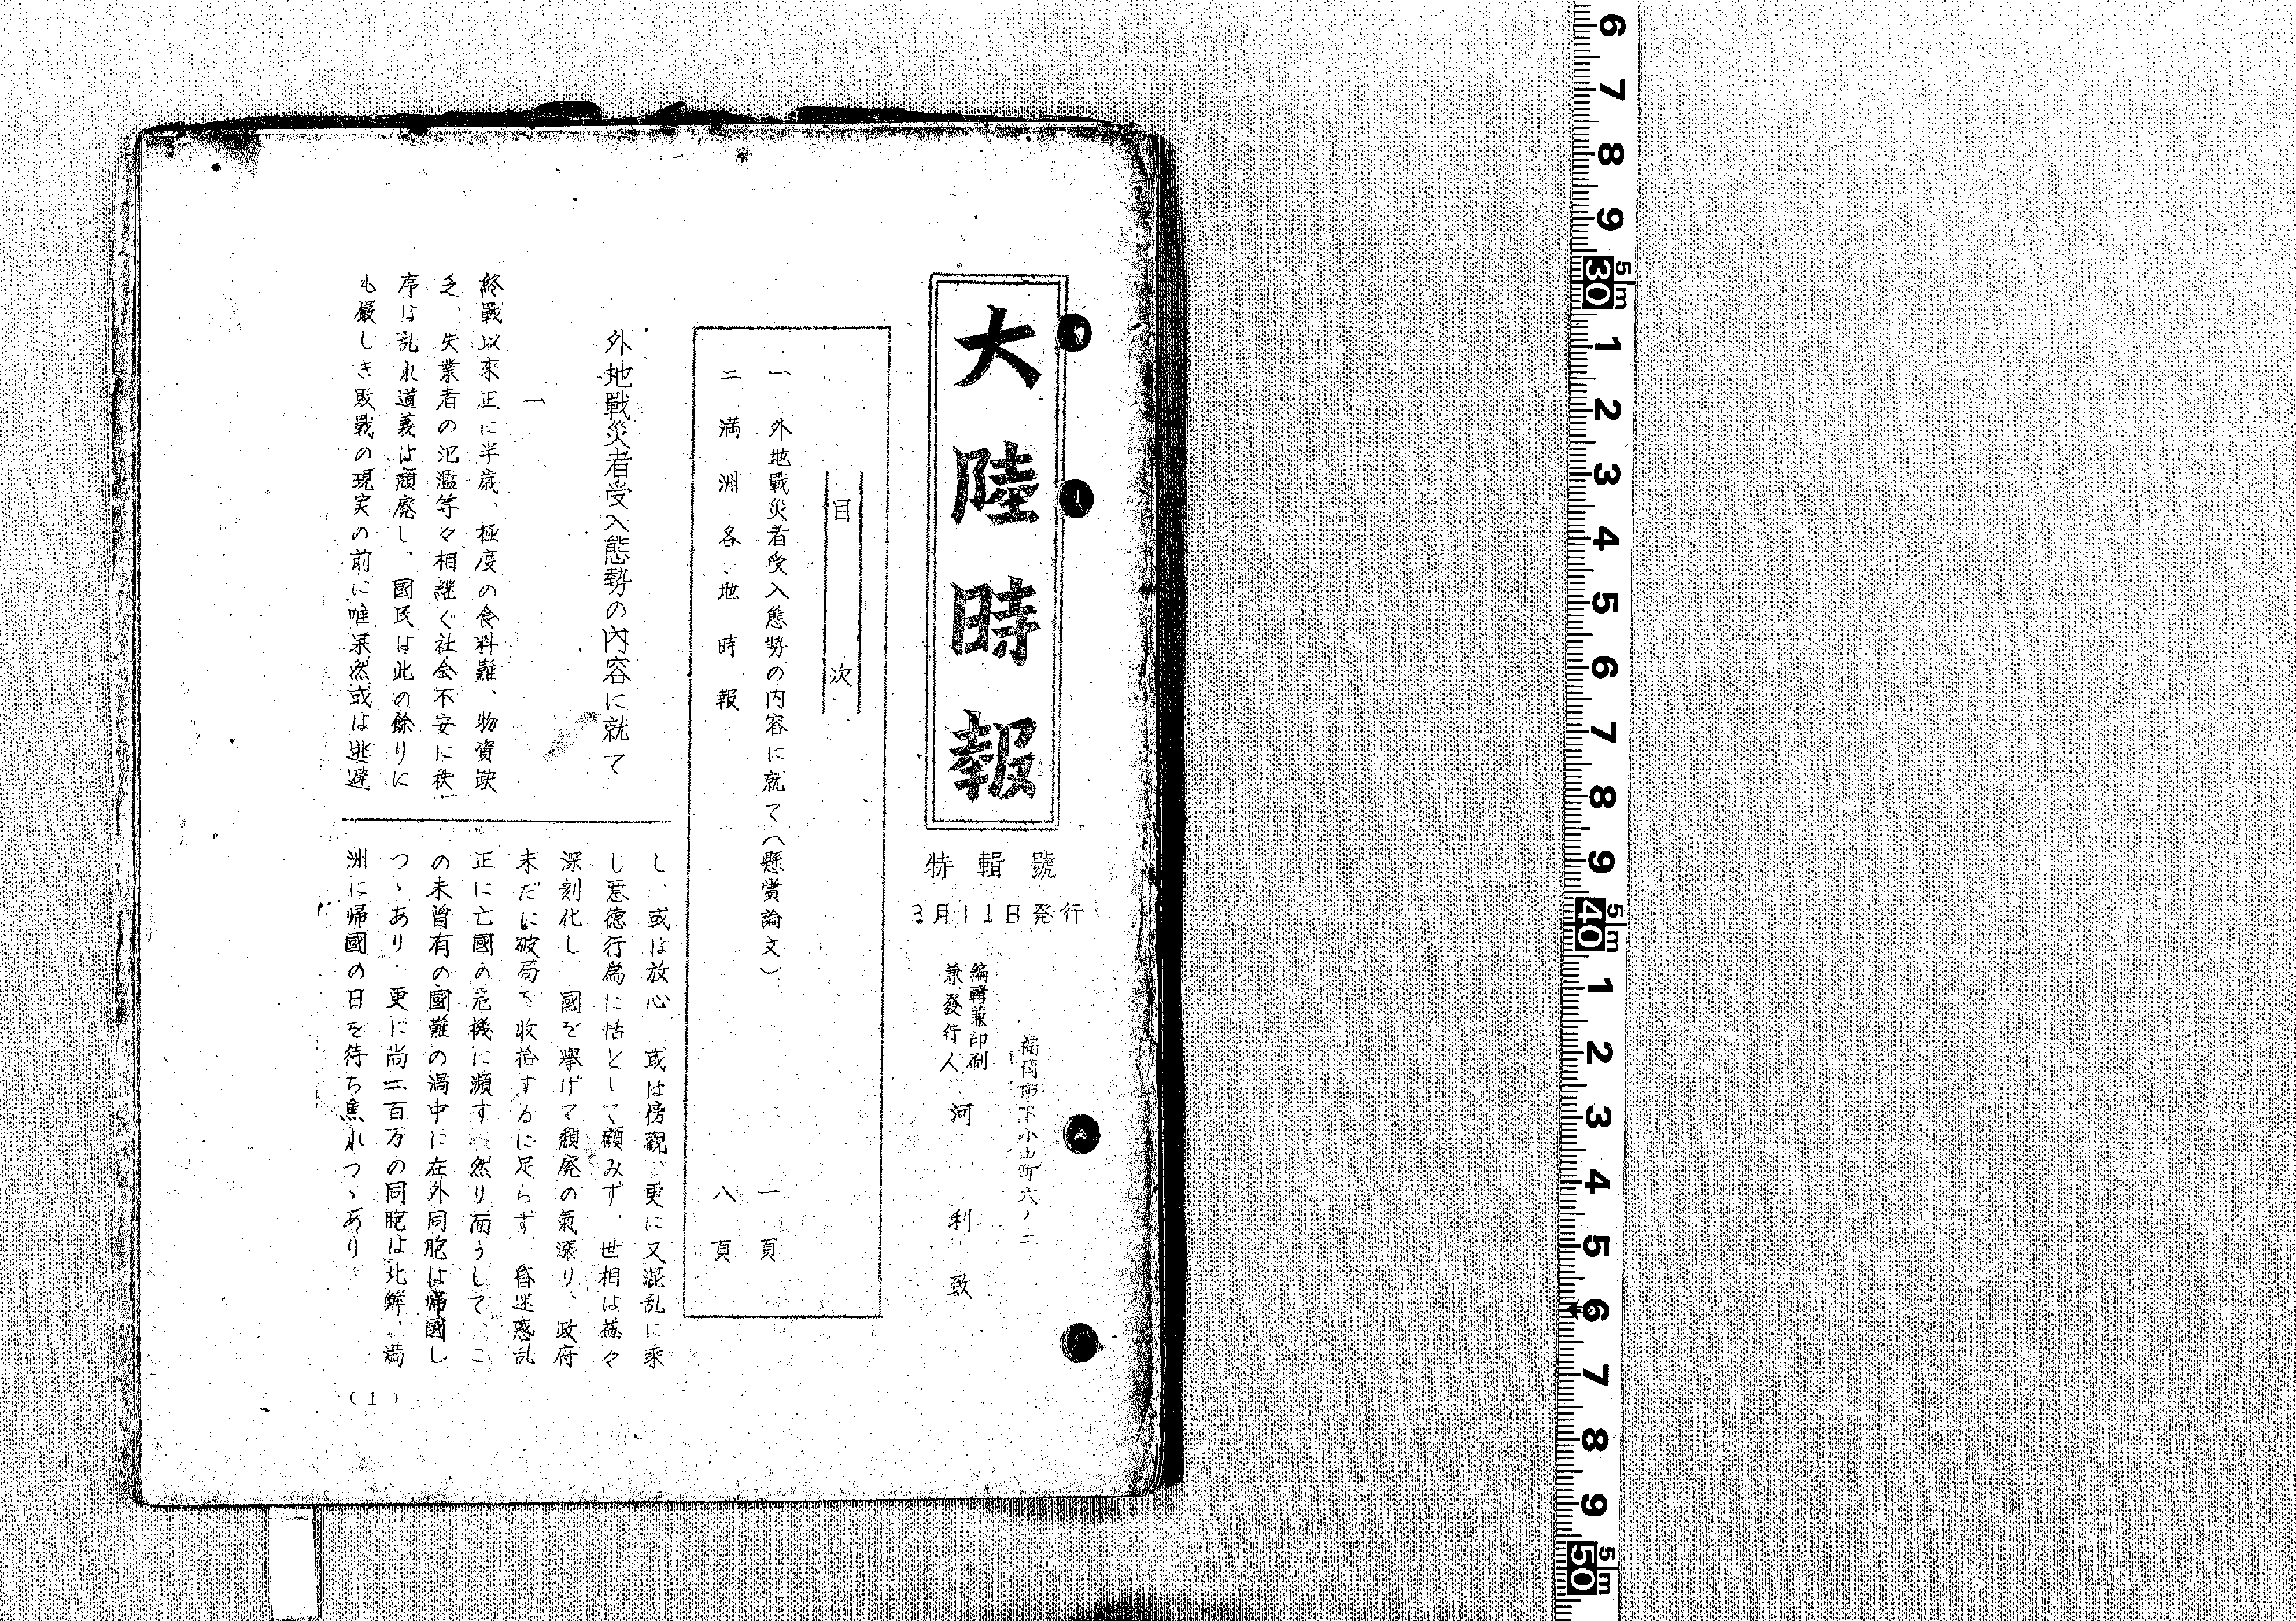 大陸時報
特輯號
3月11日発行
福岡市下小山町六ノ二
編輯兼印刷
兼發行人 河利致
目次
一 外地戰災者受入態勢の内容に就て(懸賞論文) 一頁
二 満洲各地時報 八頁
外地戰災者受入態勢の內容に就て
一
終戰以来正に半歳、極度の食料難、物資欽
乏、失業者の氾濫等々相継ぐ社会不安に秩
序は乱れ道義は頽廃し、國民は此の餘りに
も厳しき敗戰の現実の前に唯呆然或は逃避
し、或は放心 或は傍観、更に又混乱に乘
し悪德行為に恬として顧みず、世相は益々
深刻化し、國を擧げて頽廃の氣漲り、政府
未だに破局を收拾するに足らず、昏迷惑乱
正に亡國の危機に瀕す 然り而うして、こ
の未曽有の國難の渦中に在外同胞は帰國し
つゝあり、更に尚二百万の同胞は北鮮、満
洲に帰國の日を待ち焦れつゝあり、
(1)
6
7
8
9
30
5m
1
2
3
4
5
6
7
8
9
40
5m
1
2
3
4
5
6
7
8
9
50
5m